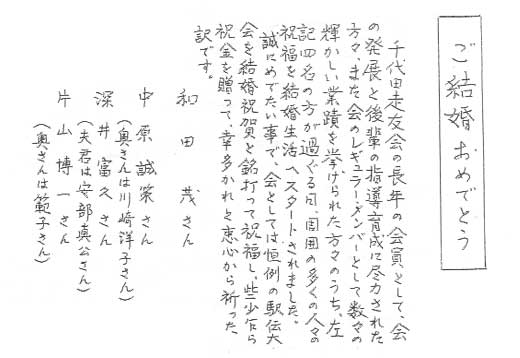 ご結婚おめでとう
千代田走友会の長年の会員として、会
の発展と後輩の指導育成に尽力された
方々、また、会のレギュラーメンバーとして数々の
輝かしい業蹟を挙げられた方々のうち、左
記四名の方が過ぐる日、周囲の多くの人々の
祝福を結婚生活へスタートされました。
誠にめでたい事で、会としては恒例の駅伝大
会を結婚祝賀と銘打って祝福し、些少乍ら
祝金を贈って、幸多かれと衷心から祈った
訳です。
和田茂さん
中原誠策さん
(奥さんは川崎洋子さん)
深井富久さん
(夫君は安部真公さん)
片山博一さん
(奥さんは範子さん)